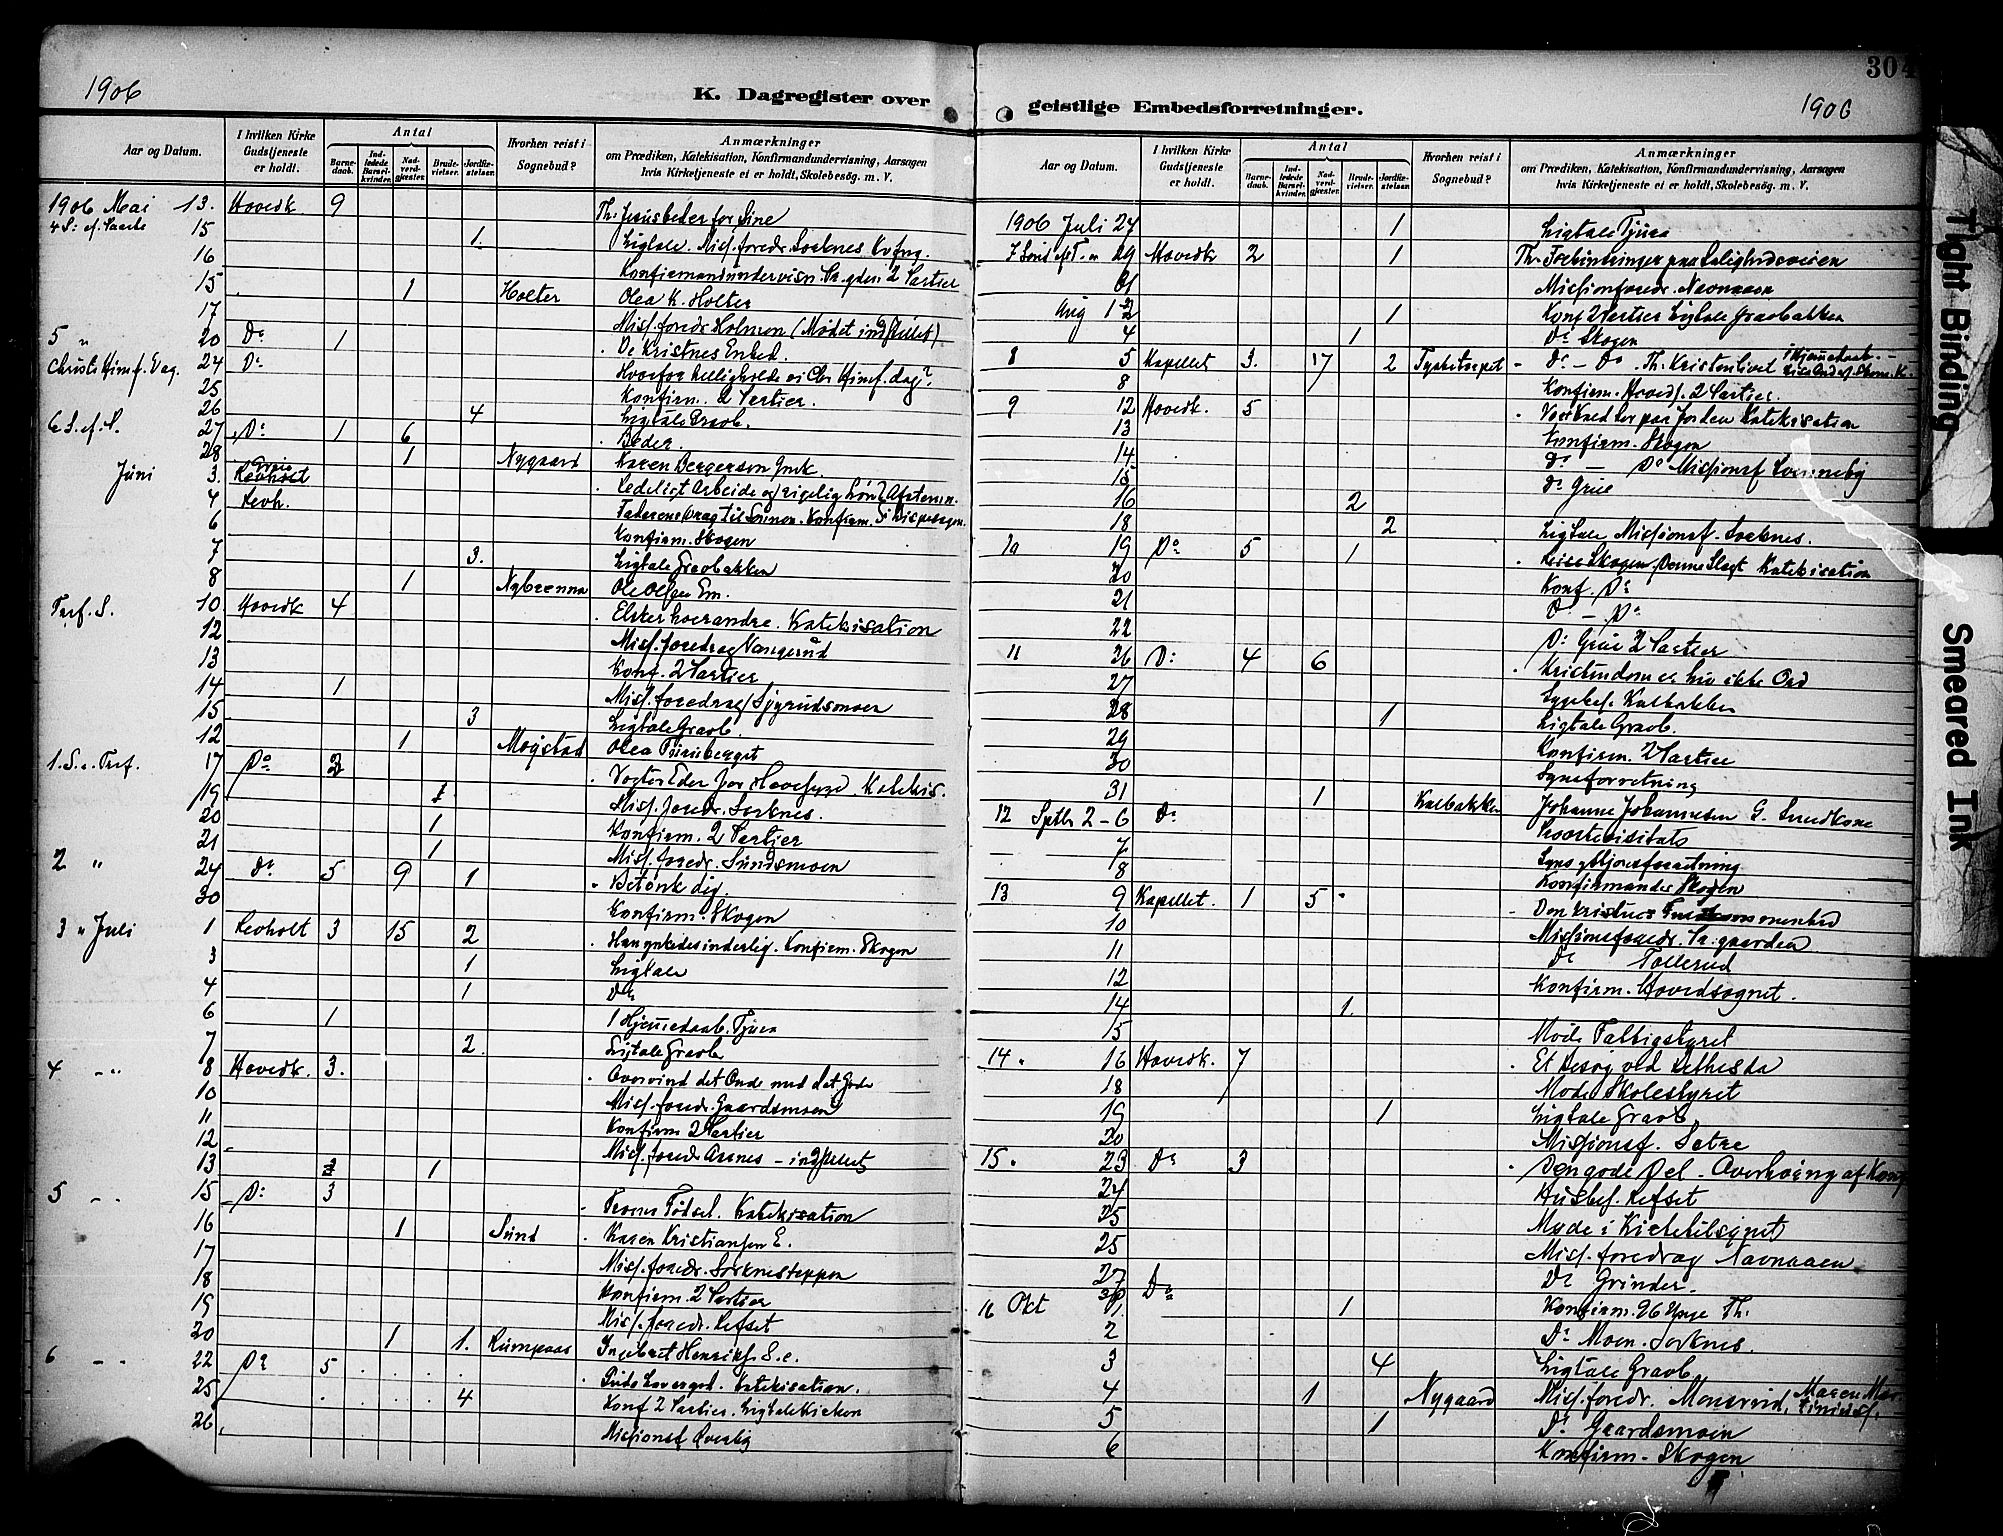 1906
K. Dagregister over
Aar og Datum.
I hvilken Kirke Gudstjeneste er holdt.
Antal
Barnedaab.
Indledede Barselkvinder.
Nadverdgjester.
Brudevielser.
Jordfæstelser.
Hvorhen reist i Sognebud?
Anmærkninger
om Prædiken, Katekisation, Konfirmandundervisning, Aarsagen
hvis Kirketjeneste ei er holdt, Skolebesøg. m. V.
1906 Mai 13. Hovedk. 9 Th. Jesus beder for Sine
4 S. ef. Paaske 15 1. Ligtale. Miss. foredr. Sorknes
16 Konfirmandundervisn. 2 Partier
15 1 Holter Olea K. Holter
17 Miss. foredr. Holmen (Mødet indstillet)
5 " 20 Do 1 De Kristnes Enhed.
Christi Himf. Dag. 24 Do Hvorfor helligholde vi Chr. Himf. dag?
25 Konfirm. 2 Partier.
26 4 Ligtale Gravb.
6 S. ef. P. 27 Do 1 6 Beder.
28 1 Nygaard Karen Bergersen Enk
Juni 3. Grue Revholt
4 Revh. Faderens Drag til Sønnen. Konfirm.
6 Konfirm. Skogen
7 3. Ligtale Gravbakken
8 1 Nybrenna Ole Olsen Em.
Tref. S. 10 Hovedk 4 Elsker hverandre. Katekisation
12 Miss. foredrag Vangerud
13 Konf. 2 Partier
14 1 Miss. foredrag
15 3 Ligtale Gravb.
12 1 Møystad Olea
1. S. e. Tref. 17 Do Vogter Eder for Havesyge. Katekis.
19 1 Miss. foredr. Sorknes.
20 1 Konfirm. 2 Partier
21 1 Miss. foredr. Sundsmoen
2 " 24 Do 5 9 1 Betænk dig.
30 Konfirm. Skogen
3 " Juli 1 Revholt 3 15 2 Han ynkedes inderlig. Konfirm. Skogen
3 1 Ligtale
4 1 Do
6 1 1 Hjemmedaab. Tjura
7 2. Ligtale Gravb
4 -"- 8 Hovedk. 3. Overvind det Onde med det Gode
10 Miss. foredr. Gaardsmoen
11 Konfirm 2 Partier
12 Miss. foredr. Arnes - indstillet
13 1
5 -"- 15 Do 3 Troens Fødsel. Katekisation
16 1 Sund Karen Kristiansen E.
17 Miss. foredr. Sorknesteppen
18 Konfirm. 2 Partier
19 Miss. foredr. Refset
20 1 1. Rumpaas Ingebret Henriks.
6 -"- 22 Do 5 Katekisation.
25 4 Konf 2 Partier. Ligtale Kirken
26 Missionsf Overby
304
geistlige Embedsforretninger.
1906
Aar og Datum.
I hvilken Kirke Gudstjeneste er holdt.
Antal
Barnedaab.
Indledede Barselkvinder.
Nadverdgjester.
Brudevielser.
Jordfæstelser.
Hvorhen reist i Sognebud?
Anmærkninger
om Prædiken, Katekisation, Konfirmandundervisning, Aarsagen
hvis Kirketjeneste ei er holdt, Skolebesøg. m. V.
1906 Juli 27 1 Ligtale Tjura
7 Sønd ef T. 29 Hovedk 2 1 Th. Forhindringer paa Salighedsveien
31 Missionsforedr. Navnaaen
Aug 1-2 1 Konf 2 Partier Ligtale Gravbakken
4 1 Do Skogen
8 5 Kapellet 3. 17 2 Tysketorpet - Do - Do. Th. Kristenlivet 1 Hjemmedaab. -
8 Konfirm. Hoveds. 2 Partier.
9 12 Hovedk. 5 paa Jorden Katekisation
13 Konfirm. Skogen
14 Do - Do Missionsf
15 Do Grue
16 2
18 2 Ligtale Missionsf. Sorknes.
10 19 Do 5 1 Reise Skogen. Denne Slegt Katekisation
20 Konf. Do
21 Do - Do
22 Do Grue 2 Partier
11 26 Do 4 6 Kristendom er liv ikke Ord
27 Sygebes. Kalbakken
28 1 Ligtale Gravb.
29 Konfirm. 2 Partier
30 Synsforretning
31 1 Kalbakken Johanne Johannesen G.
12 Sptb 2-6 Do
7
8 Konfirmander Skogen
13 9 Kapellet. 1 5 Den kristnes
10 Missionsforedr.
11 Do Tollerud
12 Konfirm. Hovedsognet.
14 1.
15 Møde Fattigstyret
14 " 16 Hovedk. 7 Et Besøg ved Bethesda
18 Møde Skolestyret
19 1 Ligtale Gravb
20 Missionsf. Sætre
15 " 23 Do 3 Den gode Del. Overhøring af Konf
24 Husbes. Refset
25 Møde i Kirketilsynet
25 Miss. foredrag Navnaaen
27 Do Grinder.
16 30 Do Konfirm. 26 Unge Th:
Okt 1. 1
2 Do Moen. Sorknes.
3 4 Ligtale Gravb
4 1 Nygaard Miss. foredr. Monsrud,
5 1 Do Gaardsmoen
6 Konfirm. Skogen
Tight Binding
Smeared Ink